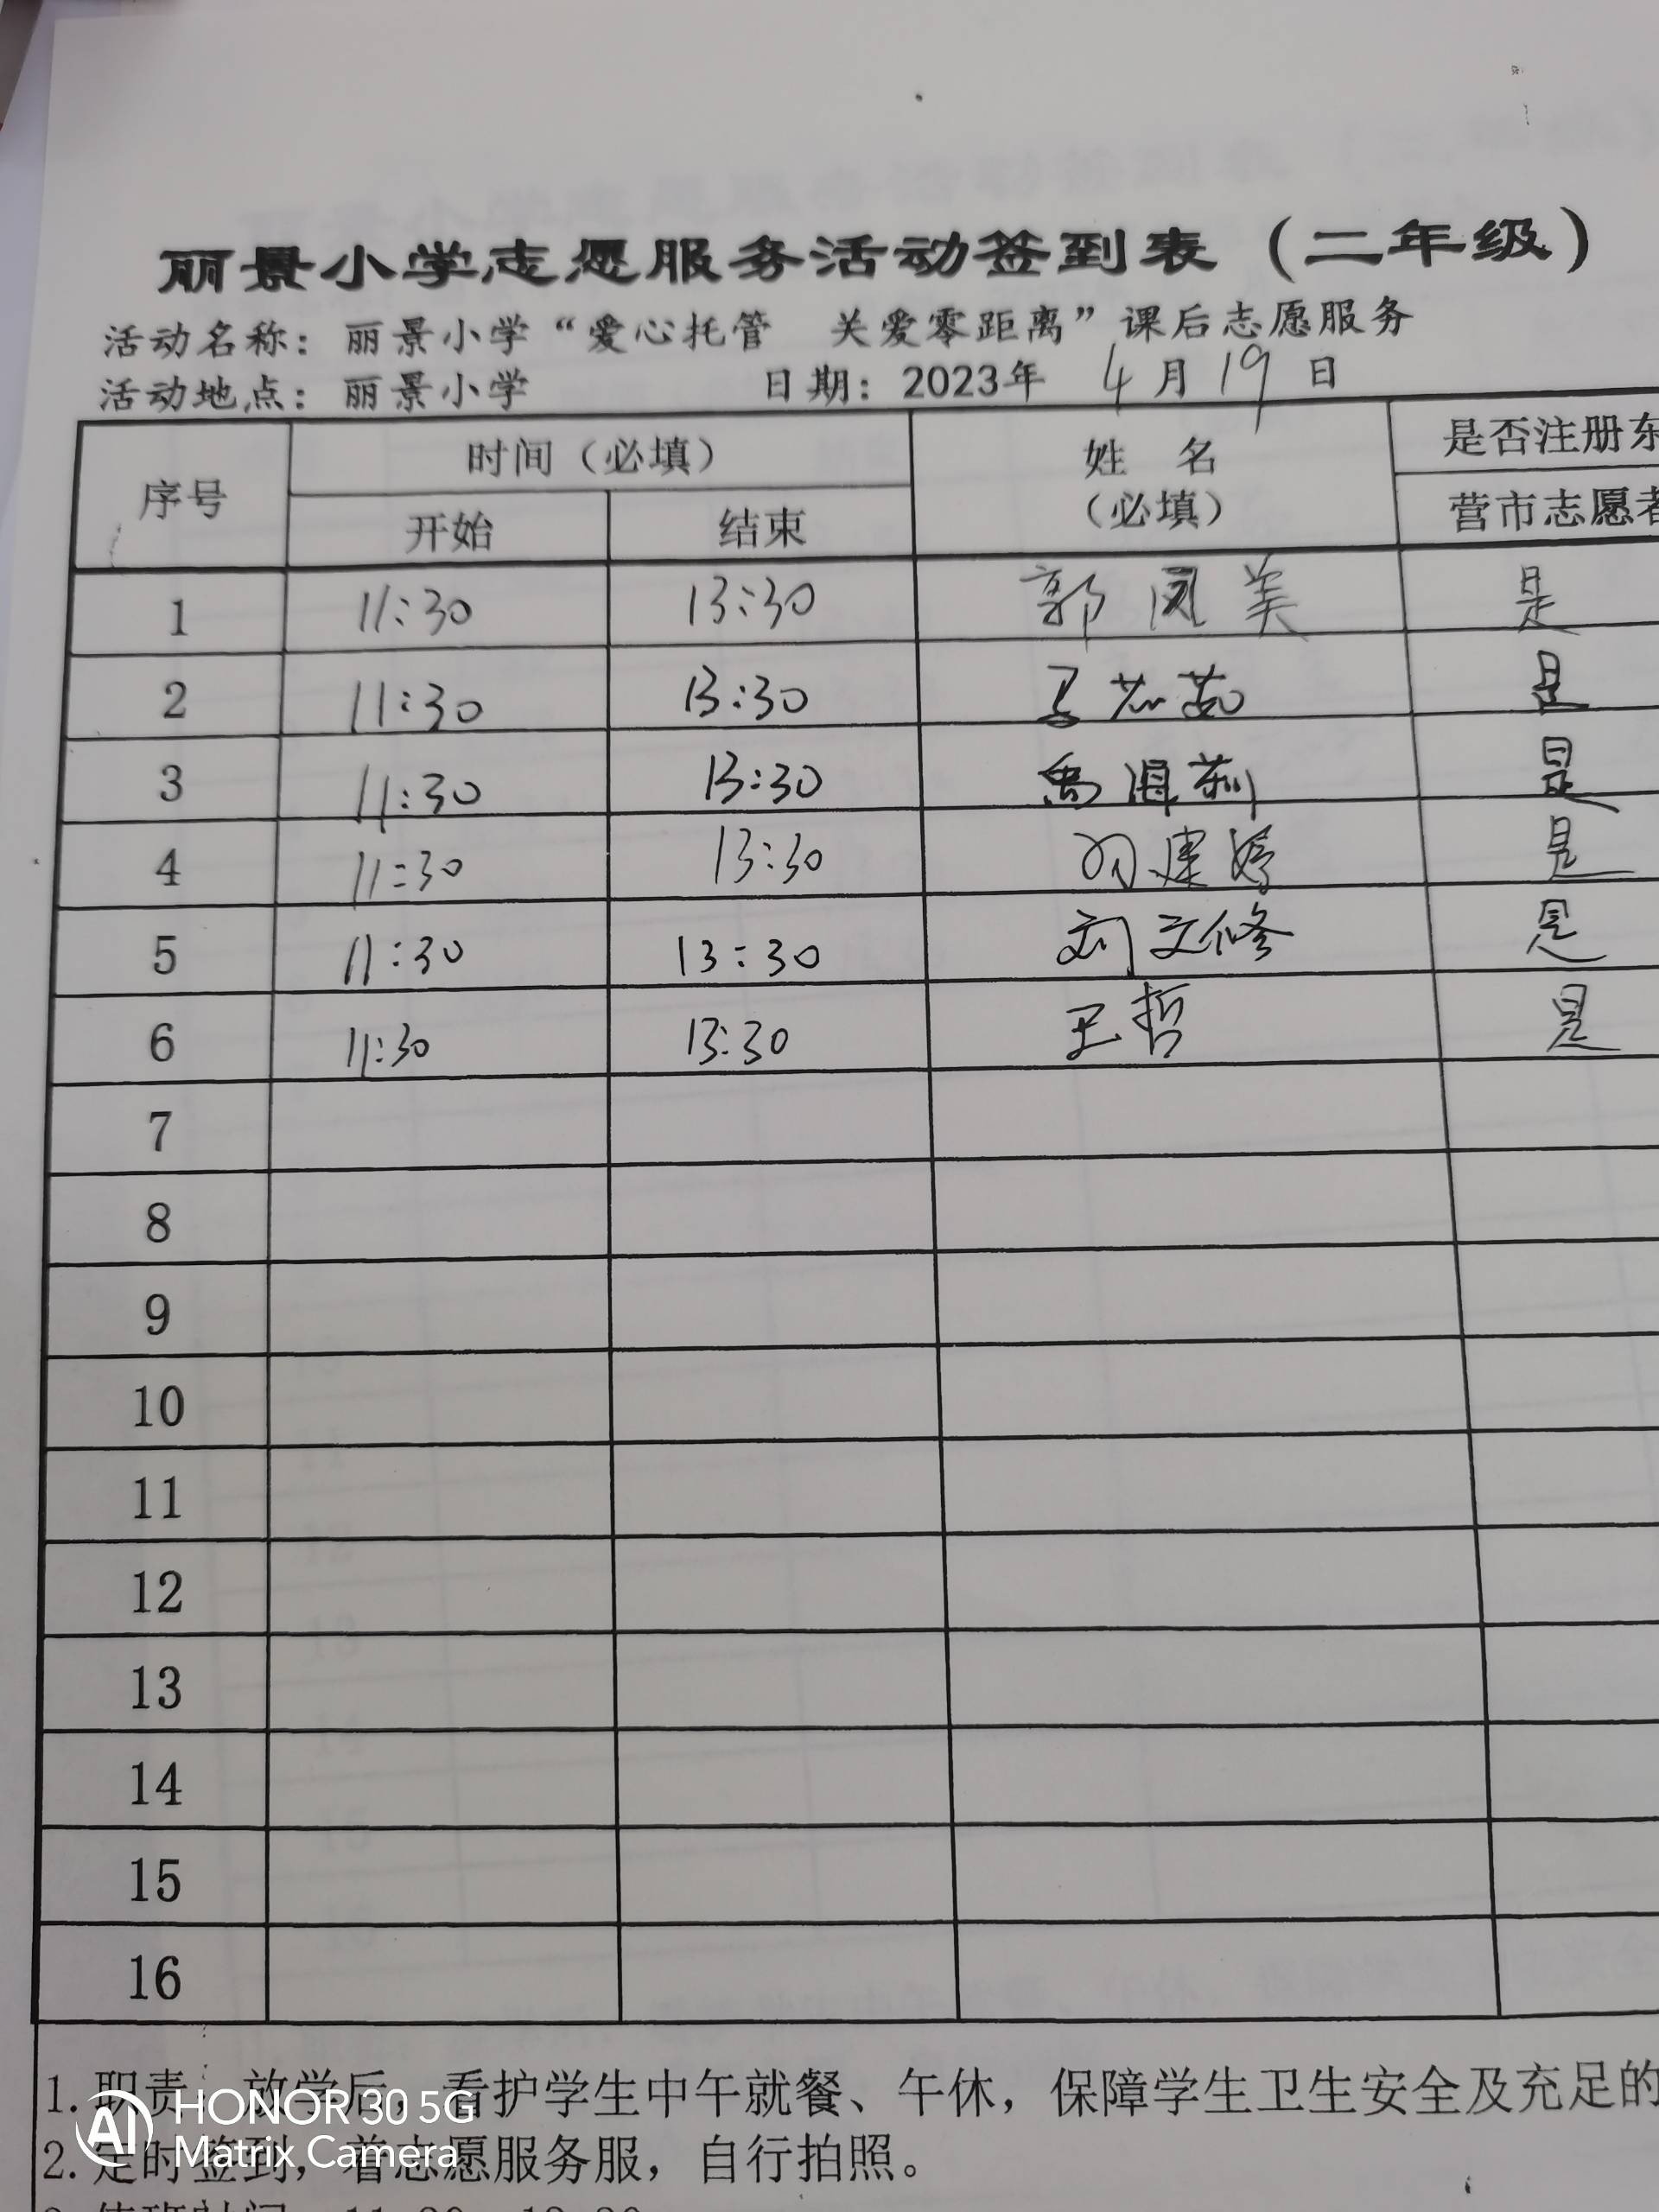 丽景小学志愿服务活动签到表（二年级）
活动名称：丽景小学“爱心托管 关爱零距离”课后志愿服务
活动地点：丽景小学 日期：2023年 4月19日
序号 时间（必填） 姓 名（必填） 是否注册东
开始 结束 营市志愿者
1 11:30 13:30 郭凤美 是
2 11:30 13:30 是
3 11:30 13:30 是
4 11:30 13:30 是
5 11:30 13:30 刘文修 是
6 11:30 13:30 王哲 是
7
8
9
10
11
12
13
14
15
16
1.职责：放学后，看护学生中午就餐、午休，保障学生卫生安全及充足的
2.定时签到，着志愿服务服，自行拍照。
AI HONOR 30 5G
Matrix Camera